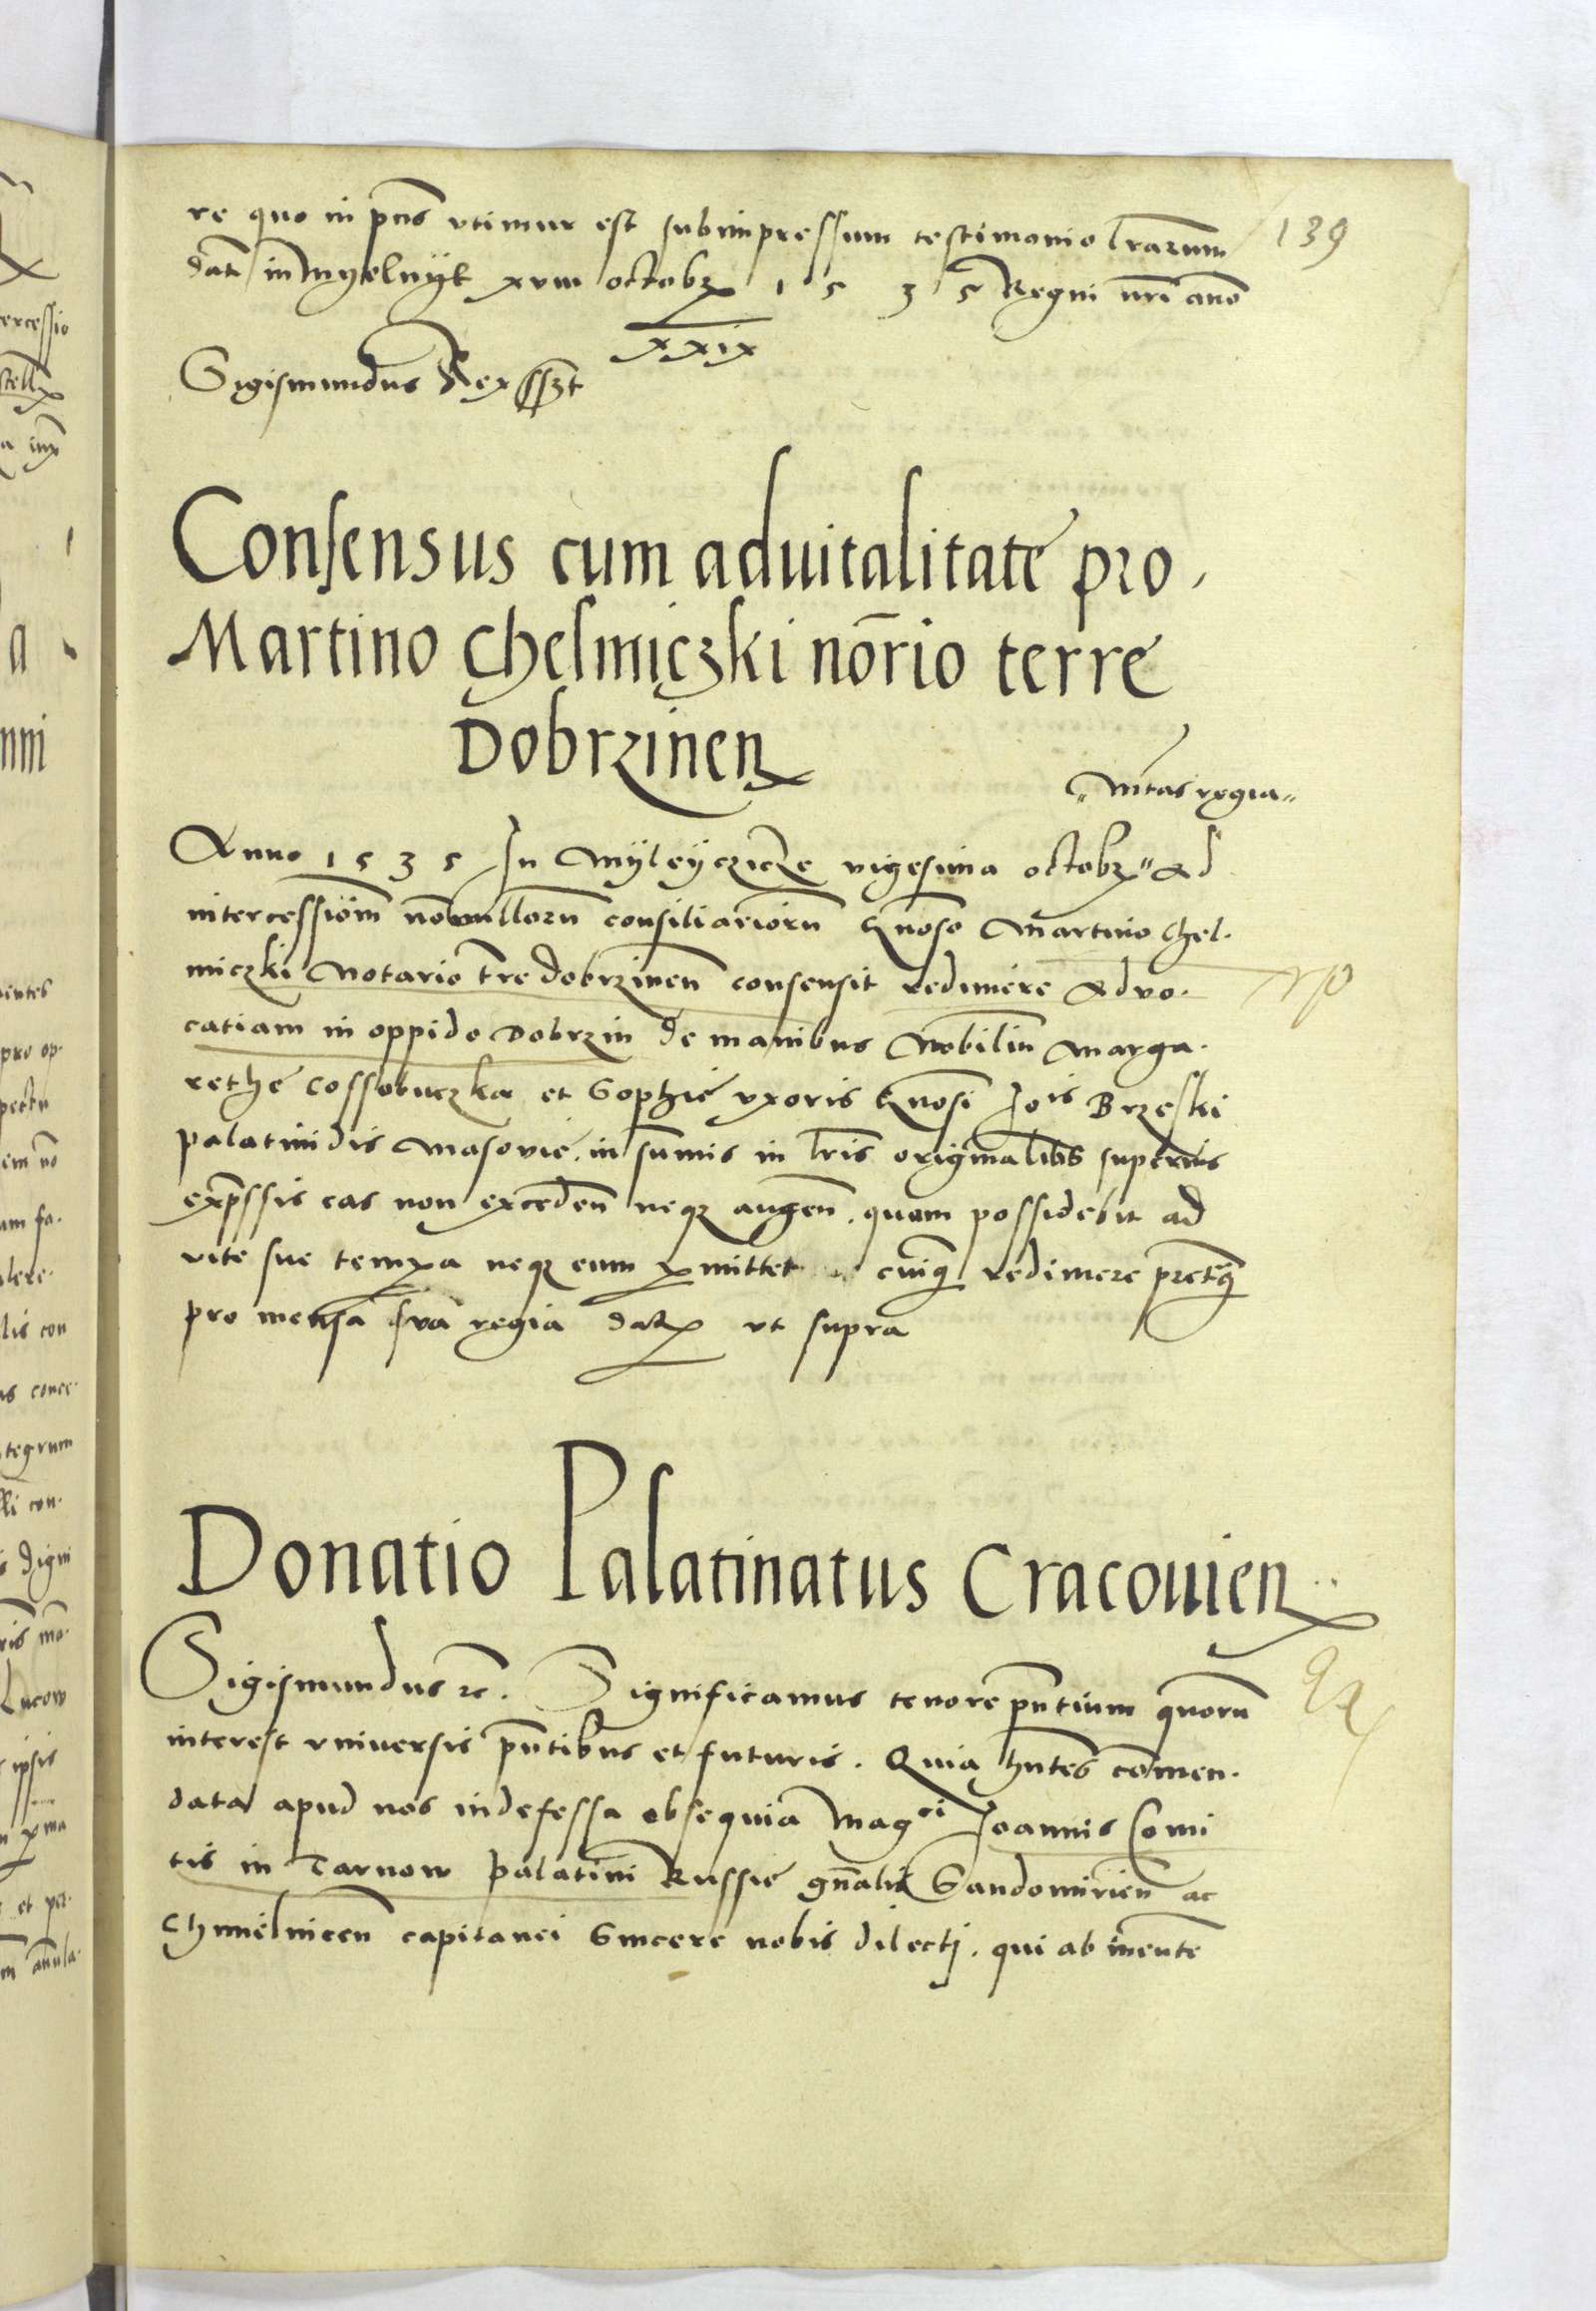 re quo in pñs vtimur est subimpressum testimonio lrarum 139
dat in Myelnyk xviii octobr 1 5 3 5 Regni nri anno
xxix
Sigismundus Rex sszt
Consensus cum aduitalitate pro
Martino Chelmiczki norio terre
Dobrzinen
Mtas regia
Anno 1535 In Myleyczicze vigesima octobr Ad
intercessiom nonnullorum consiliariorum Gnoso Martino Chel.
miczki Notario tre dobrzinen consensit redimere Advo.
catiam in oppido Dobrzin de manibus Nobilium Marga.
rethe Cossobuczka et Sophie vxoris Gnosi Jois Brzeski
palatinidis Masovie. in summis in lris originalibus superius
expssis eas non exceden neqz augen. quam possidebit ad
vite sue tempa neqz eum pmittet cuiq redimere pretq
pro mensa sua regia dat vt supra
Donatio Palatinatus Cracouien
Sigismundus rc. Significamus tenore pntium quorum
interest vniuersis pntibus et futuris. Quia hntes commen.
data apud nos indefessa obsequia Magci Joannis Comi
tis in Tarnow palatini Russie gnalis Sandomirien ac
Chmielnicen capitanei Sincere nobis dilecti. qui ab ineunte